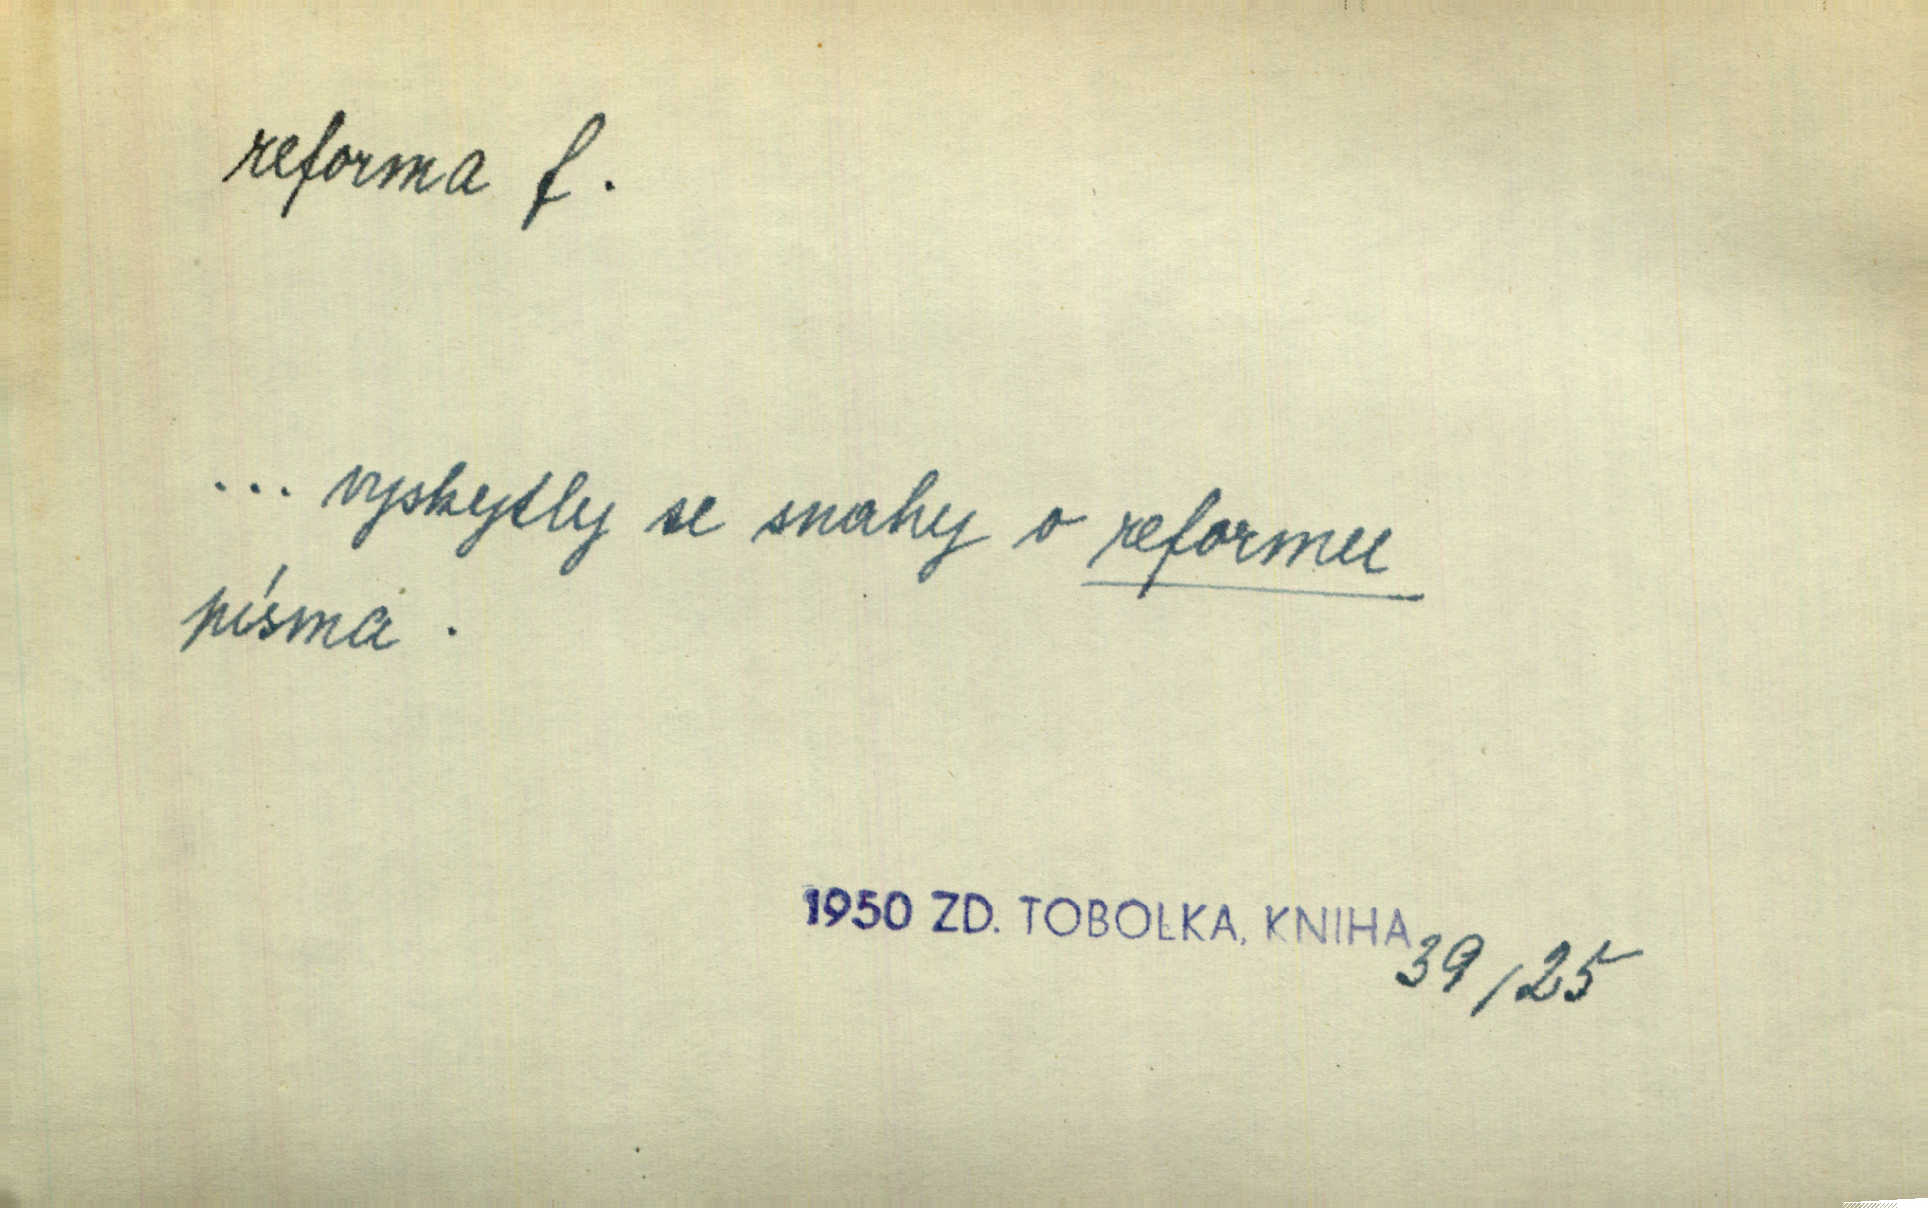 reforma f.
... vyskytly se snahy o reformu
písma.
1950 ZD. TOBOLKA, KNIHA 39/25